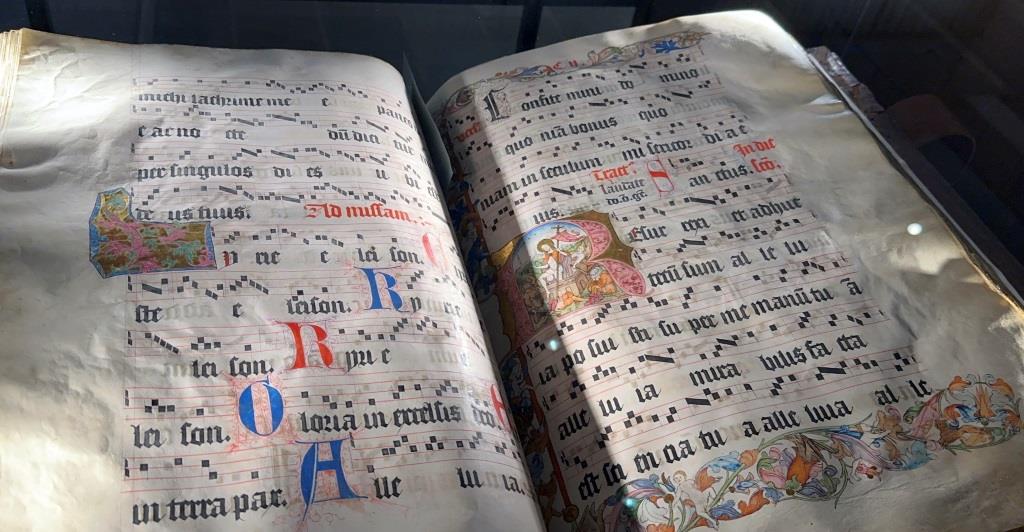 michi lachrime me e panes
e ac no cte dūdici tur m
per singulos di es u bi e
de us tuus. Ad missam.
y rie e lei son.
ste e leison. K y rie
lei son. K yri e
lei son. G loria in excelsis deo
in terra pax. A lle lu ia.
C onfite mini do mino
quo niā bonus quo
niam in seculum mi sericor di a e
ius. Tract. Laudate S an ctus. In die scō.
R esur rexi et adhuc
tecū sum al le lu
ia po sui sti su per me manū tu ā
alle lu ia mira bilis fa cta
est sci en cia tu a alle luia al le